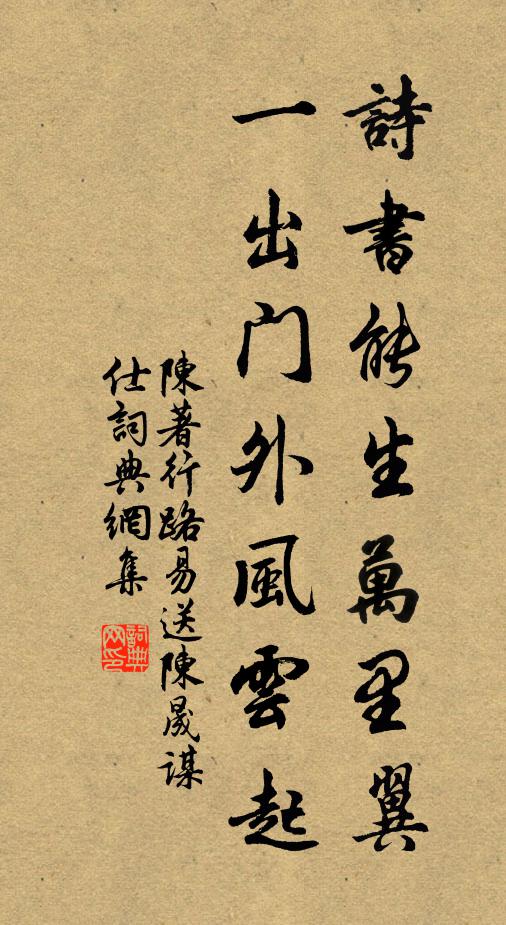 詩書能生萬里翼
一出門外風雲起
陳著行路易送陳晟謀
仕詞典網集
詞典
网印